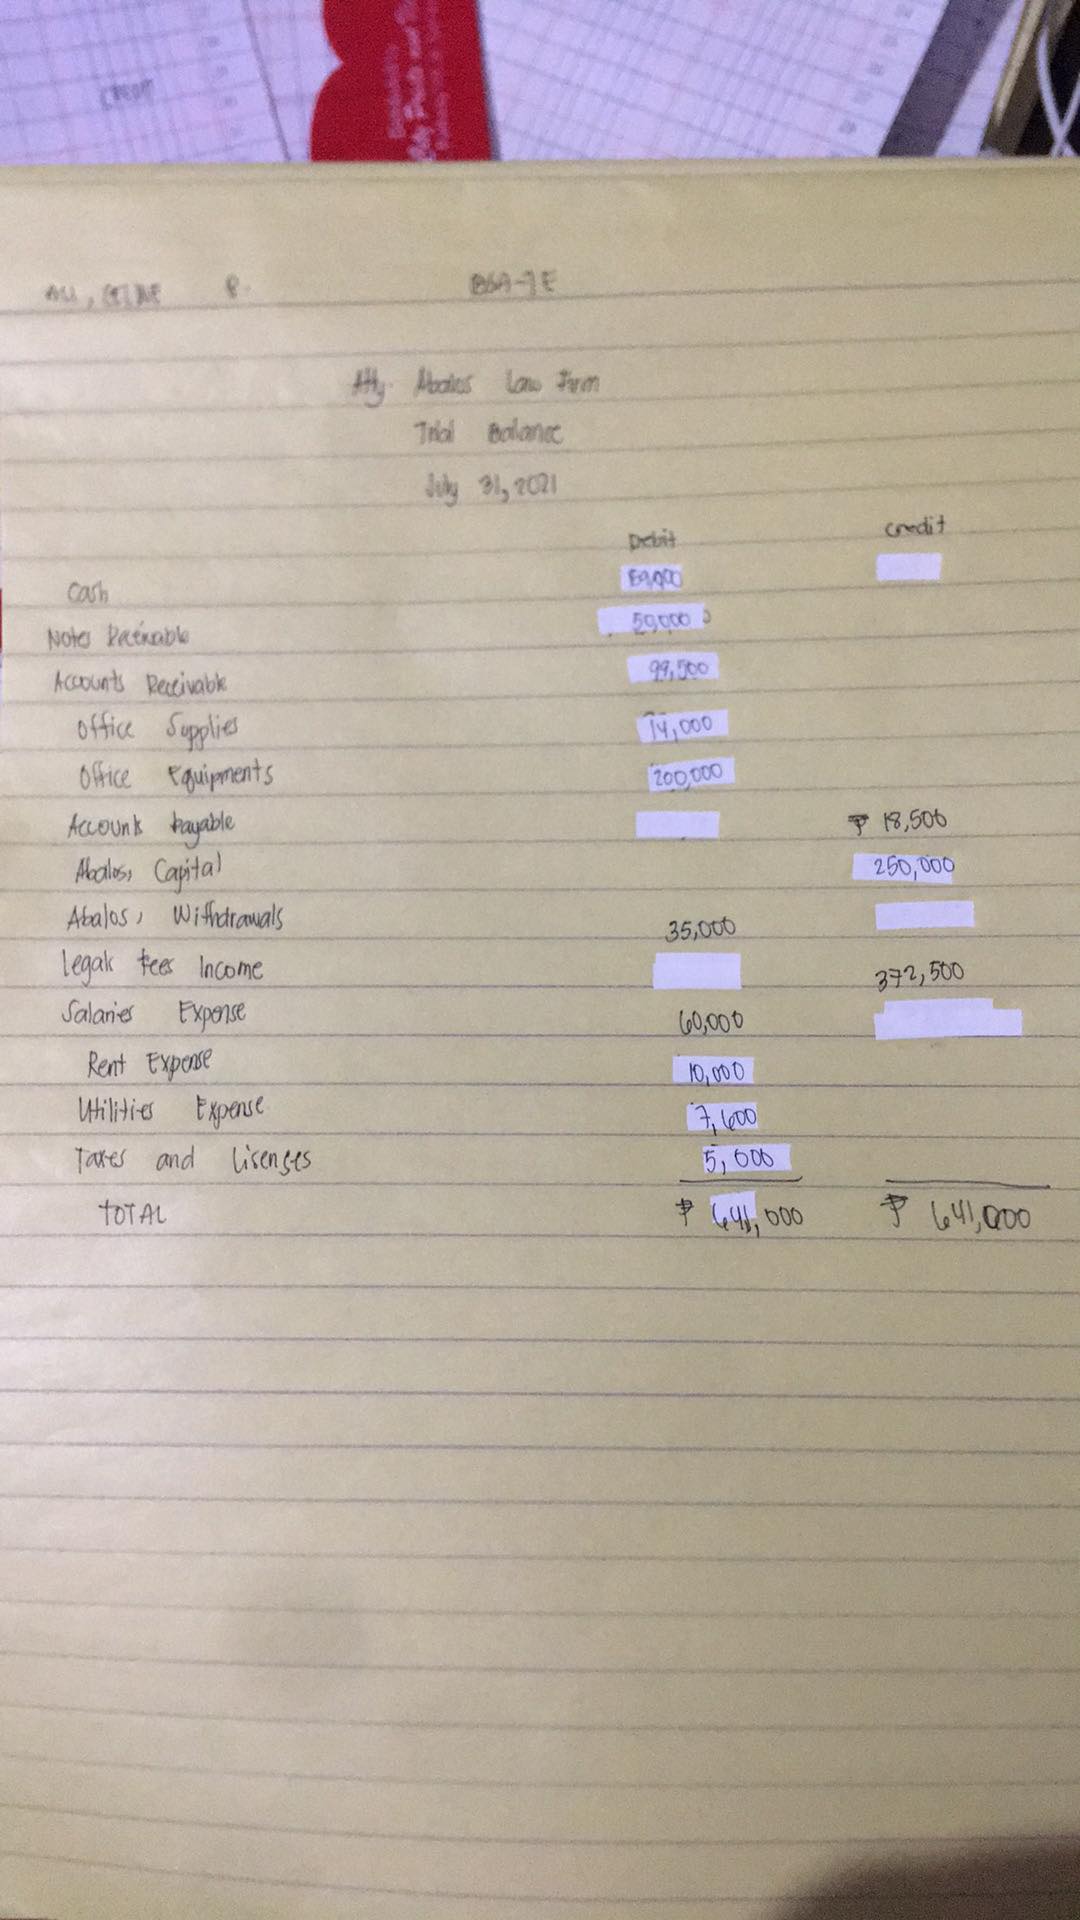 CREDIT
ALI, CELINE P. BSA-1E
Atty. Abalos Law Firm
Trial Balance
July 31, 2021
Debit Credit
Cash
Notes Receivable 50,000
Accounts Receivable 99,500
Office Supplies 14,000
Office Equipments 200,000
Accounts Payable ₱ 18,500
Abalos, Capital 250,000
Abalos, Withdrawals 35,000
Legal Fees Income 372,500
Salaries Expense 60,000
Rent Expense 10,000
Utilities Expense 7,600
Taxes and Lisenses 5,000
TOTAL ₱ 641,000 ₱ 641,000